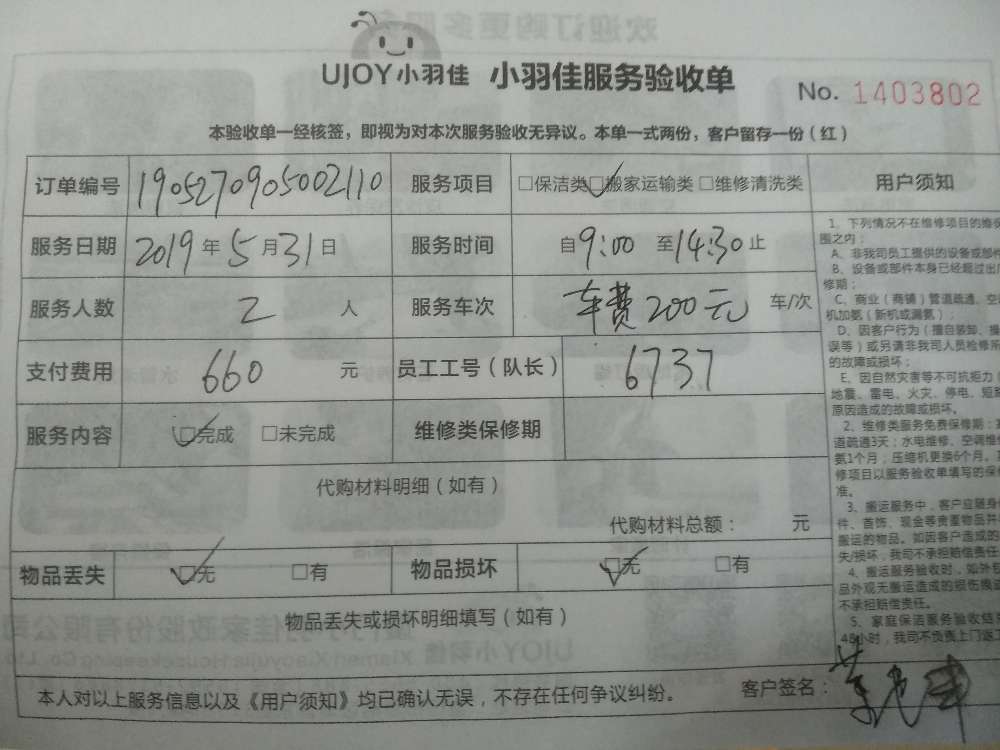 UJOY小羽佳 小羽佳服务验收单
No. 1403802
本验收单一经核签，即视为对本次服务验收无异议。本单一式两份，客户留存一份（红）
订单编号 1905270905002110 服务项目 □保洁类 ☑搬家运输类 □维修清洗类
服务日期 2019年5月31日 服务时间 自9:00至14:30止
服务人数 2人 服务车次 车费200元 车/次
支付费用 660元 员工工号（队长） 6737
服务内容 ☑完成 □未完成 维修类保修期
代购材料明细（如有）
代购材料总额： 元
物品丢失 ☑无 □有 物品损坏 ☑无 □有
物品丢失或损坏明细填写（如有）
本人对以上服务信息以及《用户须知》均已确认无误，不存在任何争议纠纷。 客户签名：
用户须知
1、下列情况不在维修项目的维
围之内：
A、非我司员工提供的设备或部件
B、设备或部件本身已经超过出
修期；
C、商业（商铺）管道疏通、空
机加氨（新机或漏氨）；
D、因客户行为（擅自装卸、操
误等）或另请非我司人员检修所
的故障或损坏；
E、因自然灾害等不可抗拒力（
地震、雷电、火灾、停电、短
原因造成的故障或损坏。
2、维修类服务免费保修期：
道疏通3天；水电维修、空调维
氨1个月；压缩机更换6个月。
修项目以服务验收单填写的保
准。
3、搬运服务中，客户应随身
件、首饰、现金等贵重物品并
搬运的物品。如因客户造成的
失/损坏，我司不承担赔偿责任
4、搬运服务验收时，如外包
品外观无搬运造成的损伤痕迹
不承担赔偿责任。
5、家庭保洁服务验收结
48小时，我司不负责上门返工